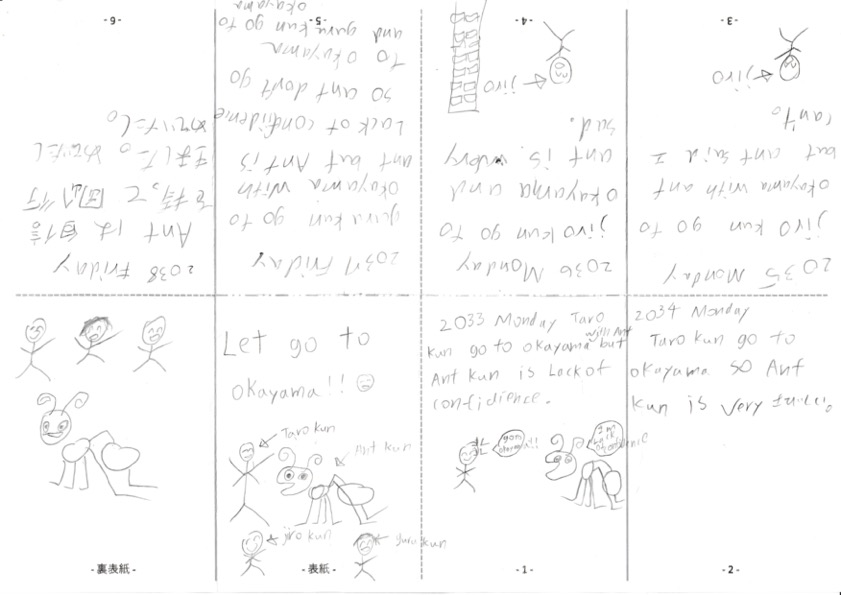 Let go to
okayama!!
Taro kun
Ant kun
jiro kun
guru kun
- 表紙 -
2033 Monday Taro
kun go to okayama with Ant but
Ant kun is Lack of
confidience.
- 1 -
2034 Monday
Taro kun go to
okayama so Ant
kun is very
- 2 -
2035 Monday
jiro kun go to
okayama with ant
but ant said I
can't。
jiro
- 3 -
2036 Monday
jiro kun go to
okayama and
ant is very
sad.
jiro
- 4 -
2037 Friday
guru kun go to
okayama with
ant but Ant is
Lack of confidence
so ant don't go
To okayama
and guru kun go to
okayama
- 5 -
2038 Friday
Ant は自信
を持って岡山行
きました。めでたし
めでたし。
- 6 -
- 裏表紙 -